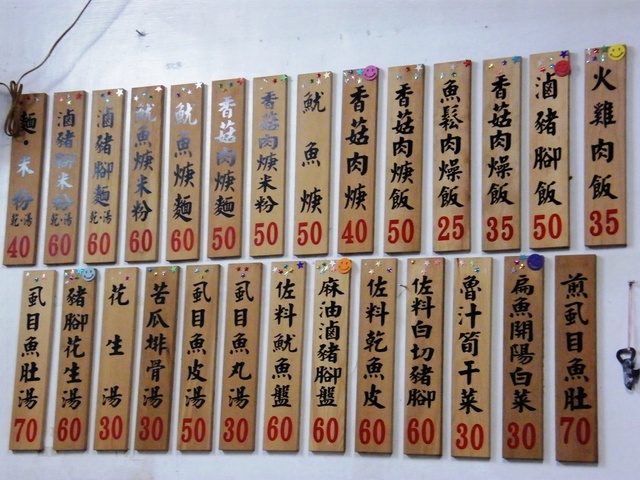 火雞肉飯 35
滷豬腳飯 50
香菇肉燥飯 35
魚鬆肉燥飯 25
香菇肉焿飯 50
香菇肉焿 40
魷魚焿 50
香菇肉焿米粉 50
香菇肉焿麵 50
魷魚焿麵 60
魷魚焿米粉 60
滷豬腳麵 乾·湯 60
滷豬腳米粉 乾·湯 60
麵·米粉 乾·湯 40
煎虱目魚肚 70
扁魚開陽白菜 30
魯汁筍干菜 30
佐料白切豬腳 60
佐料乾魚皮 60
麻油滷豬腳盤 60
佐料魷魚盤 60
虱目魚丸湯 30
虱目魚皮湯 50
苦瓜排骨湯 30
花生湯 30
豬腳花生湯 60
虱目魚肚湯 70